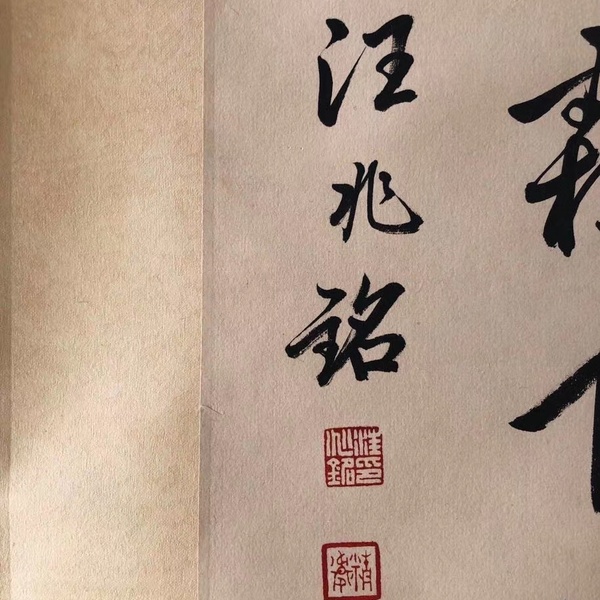 汪兆銘
汪印兆銘
精衛